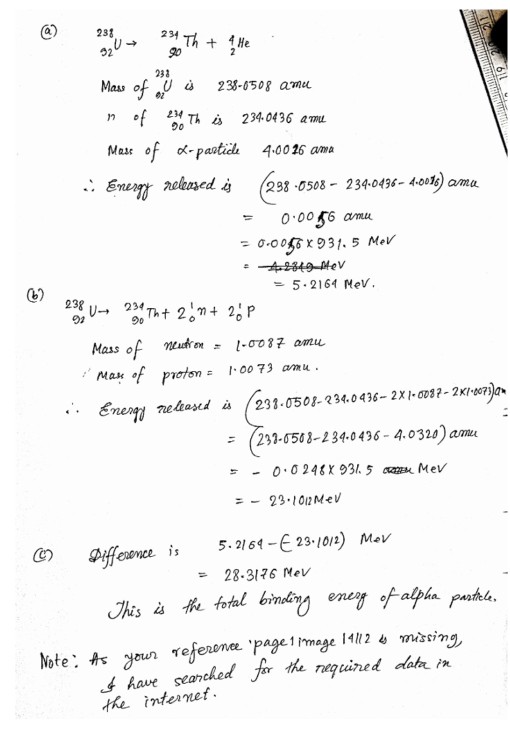 (a) ²³⁸₉₂U → ²³⁴₉₀Th + ⁴₂He
Mass of ²³⁸₉₂U is 238.0508 amu
n of ²³⁴₉₀Th is 234.0436 amu
Mass of α-particle 4.0026 amu
∴ Energy released is (238.0508 - 234.0436 - 4.0016) amu
= 0.0056 amu
= 0.0056 × 931.5 MeV
= 4.2849 MeV
= 5.2164 MeV.
(b) ²³⁸₉₂U → ²³⁴₉₀Th + 2¹₀n + 2¹₀P
Mass of neutron = 1.0087 amu
Mass of proton = 1.0073 amu.
∴ Energy released is (238.0508 - 234.0436 - 2×1.0087 - 2×1.0073) am
= (238.0508 - 234.0436 - 4.0320) amu
= - 0.0248 × 931.5 MeV
= - 23.1012 MeV
(c) Difference is 5.2164 - (-23.1012) MeV
= 28.3176 MeV
This is the total binding energy of alpha particle.
Note: As your reference 'page 1 image 14112 is missing,
I have searched for the required data in
the internet.